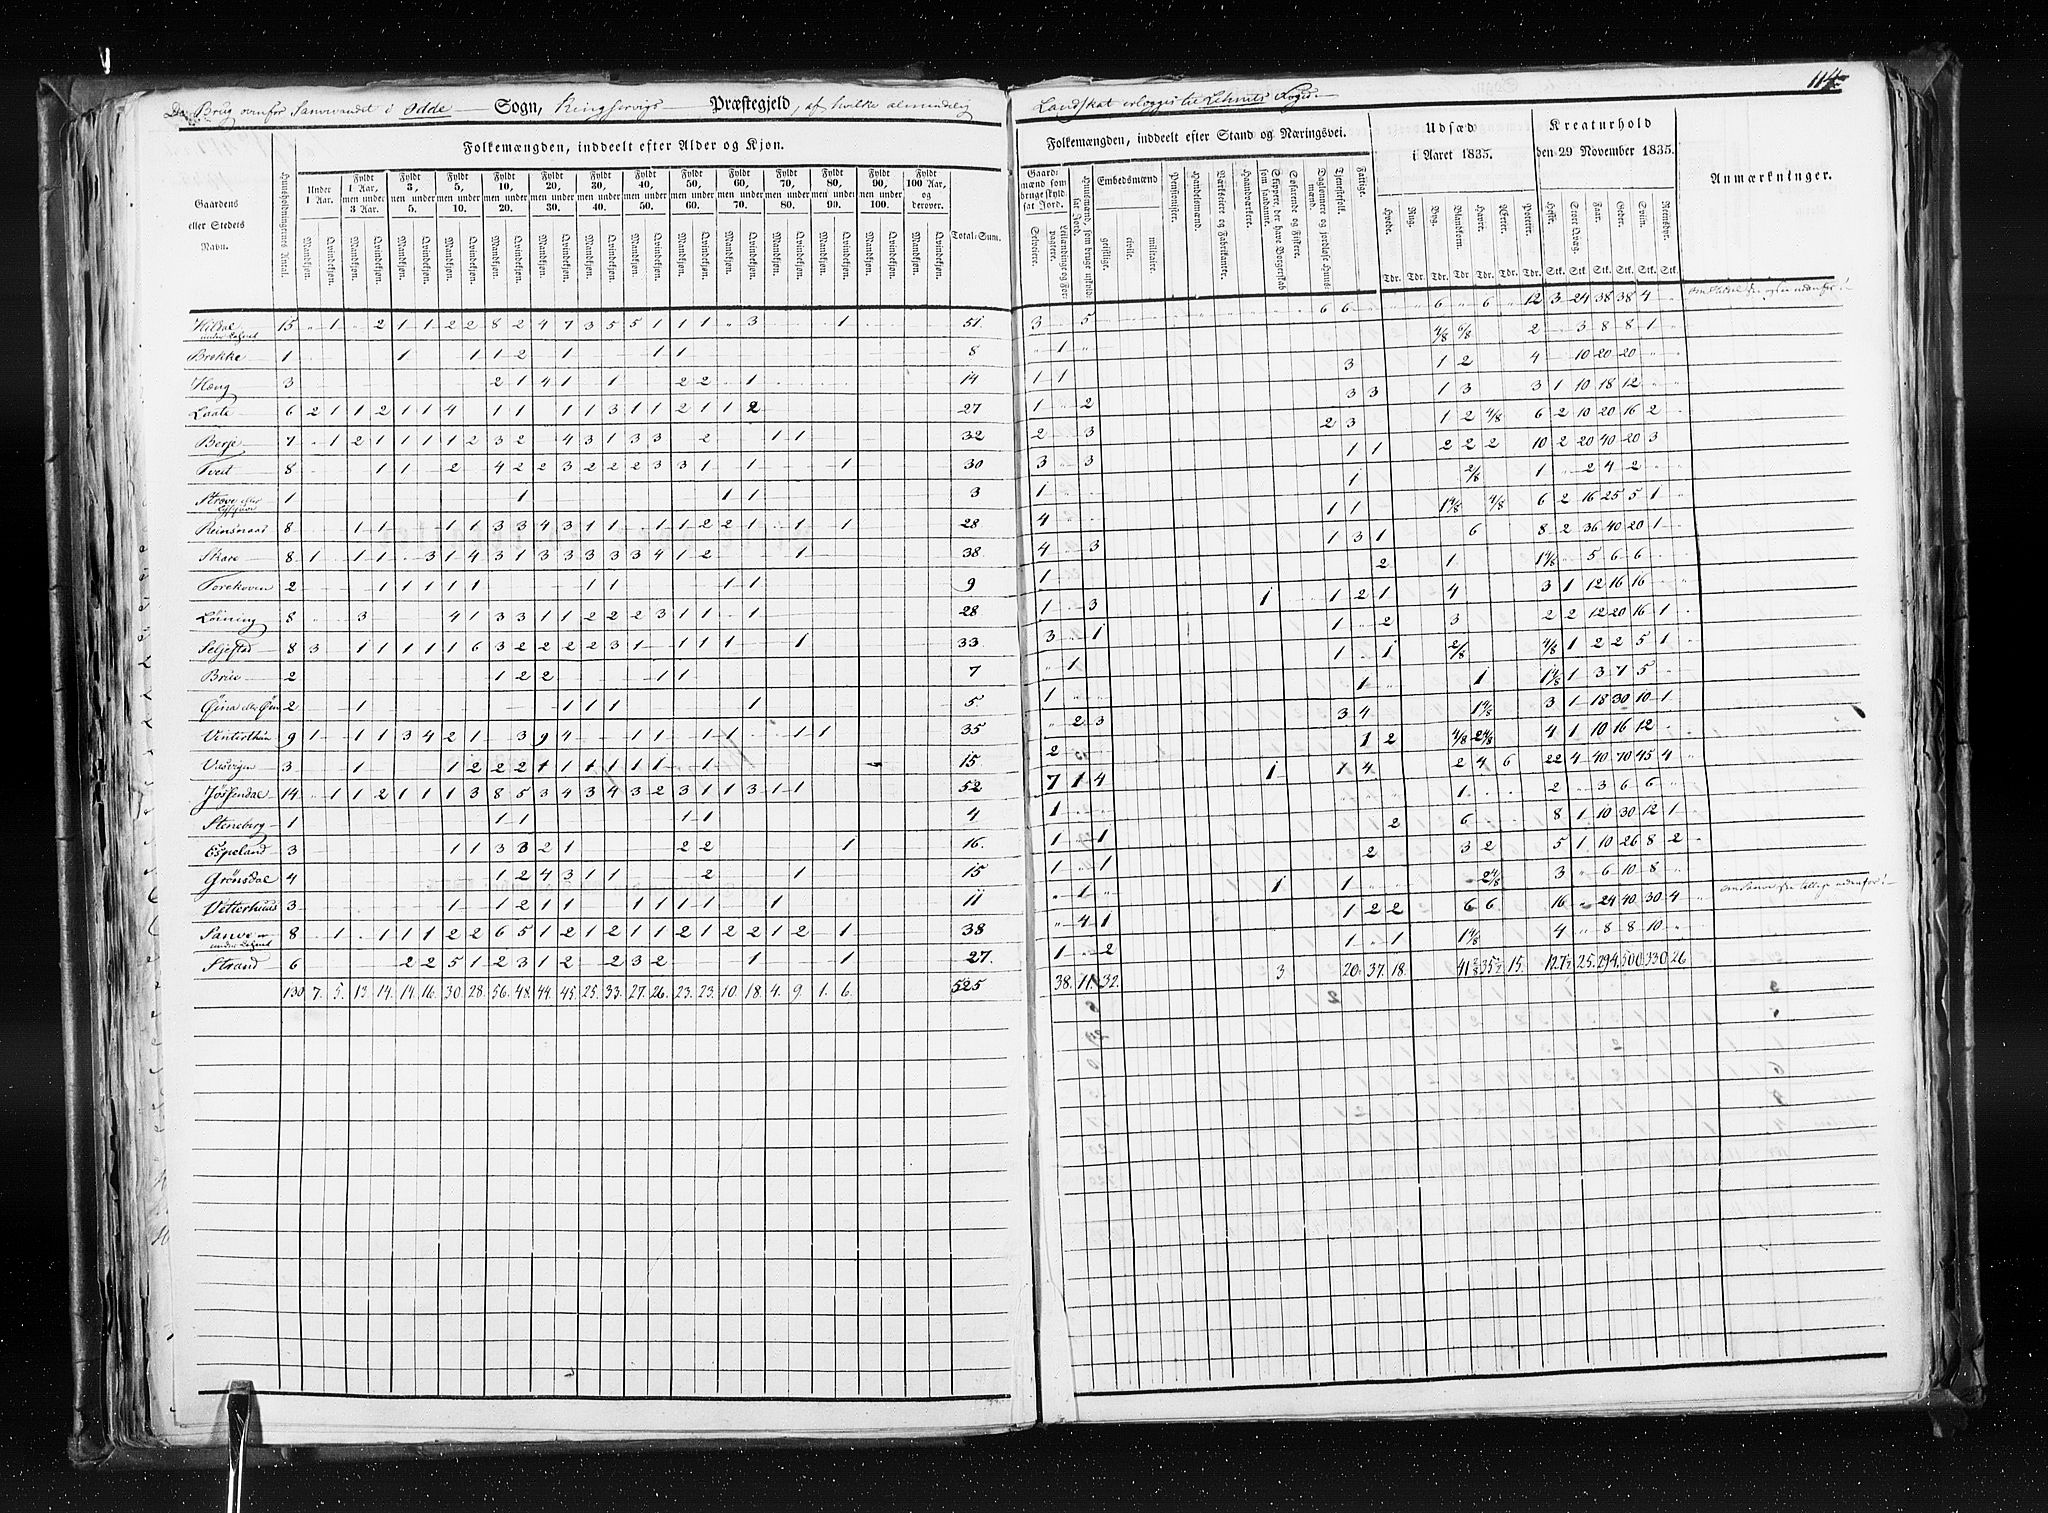 114
De Brug ovenfor Sanvevandet i Odde Sogn, Kingservigs Præstegjeld, af hvilke almindelig
Landskat erlægges til Lehnets
Gaardens eller Steders Navn.
Huusholdningernes Antal.
Folkemængden, inddeelt efter Alder og Kjøn.
Under 1 Aar.
Fyldt 1 Aar, men under 3 Aar.
Fyldt 3, men under 5.
Fyldt 5, men under 10.
Fyldt 10, men under 20.
Fyldt 20, men under 30.
Fyldt 30, men under 40.
Fyldt 40, men under 50.
Fyldt 50, men under 60.
Fyldt 60, men under 70.
Fyldt 70, men under 80.
Fyldt 80, men under 90.
Fyldt 90, men under 100.
Fyldt 100 Aar, og derover.
Mandkjøn. Qvindekjøn.
Total-Sum.
Hildal 15 " 1 " 2 1 1 2 2 8 2 4 7 3 5 5 1 1 1 " 3 1 51
under Lehnet
Brekke 1 1 1 1 2 1 1 1 8
Hæug 3 2 1 4 1 1 2 2 1 14
Laate 6 2 1 1 2 1 1 4 1 1 1 1 3 1 1 2 1 1 2 27
Berje 7 1 2 1 1 1 1 2 3 2 4 3 1 3 3 2 1 1 32
Tveit 8 1 1 2 4 2 2 3 2 2 2 3 3 1 1 1 30
Strove eller 1 1 1 1 3
Reinsnaas 8 1 1 1 1 3 3 4 3 1 1 1 1 2 2 1 1 1 28
Skare 8 1 1 1 3 1 4 3 1 3 3 3 3 3 4 1 2 1 38
Torekoven 2 1 1 1 1 1 1 1 1 1 9
Løining 8 3 4 1 3 3 1 1 2 2 2 3 1 1 1 28
Seljestad 8 3 1 1 1 1 1 6 3 2 2 2 2 3 1 1 1 1 1 1 33
Brue 2 1 2 2 1 1 7
Øina eller Øin 2 1 1 1 1 1 5
Vinterthun 9 1 1 1 3 4 2 1 3 9 4 1 1 1 1 1 1 35
Vasvigen 3 1 1 2 2 2 1 1 1 1 1 1 1 15
Jøsendal 14 1 1 2 1 1 1 3 8 5 3 4 3 4 3 2 3 1 1 3 1 1 52
Steneberg 1 1 1 1 1 4
Espeland 3 1 1 3 3 2 1 2 2 1 16
Grønsdal 4 1 2 4 3 1 1 2 1 15
Vetterhuus 3 1 1 2 1 1 1 1 1 1 1 11
Sanve 8 1 1 1 1 2 2 6 5 1 2 1 2 1 1 2 1 2 2 1 2 1 38
under Lehnet
Strand 6 2 2 5 1 2 3 1 2 2 3 2 1 1 27
130 7. 5. 13. 14. 14. 16. 30. 28. 56. 48. 44. 45. 25. 33. 27. 26. 23. 23. 10. 18. 4. 9. 1. 6. 525
Folkemængden, inddeelt efter Stand og Næringsvei.
Gaardmænd som bruge skyldsat Jord.
Selveiere.
Leilændinge og Forpagtere.
Huusmænd, som bruge skyldsat Jord.
Embedsmænd
geistlige. civile. militaire.
Pensionister.
Handelsmænd.
Værkseiere og Fabrikanter.
Haandværkere.
Skippere, der have Borgerskab som saadanne.
Søfarende og Fiskere.
Daglønnere og jordløse Huusmænd.
Tjenestefolk.
Fattige.
Udsæd i Aaret 1835.
Hvede. Rug. Byg. Blandkorn. Havre. Ærter. Poteter.
Tdr. Tdr. Tdr. Tdr Tdr. Tdr. Tdr.
Kreaturhold den 29 November 1835.
Heste. Stort Qvæg. Faar. Geder. Sviin. Reensdyr.
Stk. Stk. Stk. Stk. Stk. Stk.
Anmærkninger.
3 5 6 6 6 " 6 " 12 3 24 38 38 4
" 1 4/8 6/8 2 " 3 8 8 1
1 1 3 1 2 4 10 20 20
1 2 3 3 1 3 3 1 10 18 12
2 3 2 3 1 2 4/8 6 2 10 20 16 2
3 3 1 1 2 2 2 10 2 20 40 20 3
1 1 2/8 1 2 4 2
4 1 1 1 4/8 4/8 6 2 16 25 5 1
4 3 1 3 1 6 8 2 36 40 20 1
1 2 1 1 4/8 5 6 6
1 3 1 1 2 1 4 3 1 12 16 16
3 1 1 2 3 2 2 12 20 16 1
" 1 1 1 2/8 4/8 1 2 2 5 1
1 1 1 1 4/8 1 3 7 5
" 2 3 3 4 1 4/8 3 1 18 30 10 1
2 1 2 4/8 2 4/8 4 1 10 16 12
7 1 4 1 1 4 2 4 6 22 4 40 70 45 4
1 1 2 3 6 6
1 1 2 6 8 1 10 30 12 1
1 1 2 3 2 5 1 10 26 8 2
" 1 " 1 1 2 4/8 3 " 6 10 8
" 4 1 1 2 2 6 6 16 " 24 40 30 4
1 2 1 " 1 1 4/8 4 " 8 8 10
38. 11. 32. 3 20. 37. 18. 15. 25. 294. 500. 330. 26